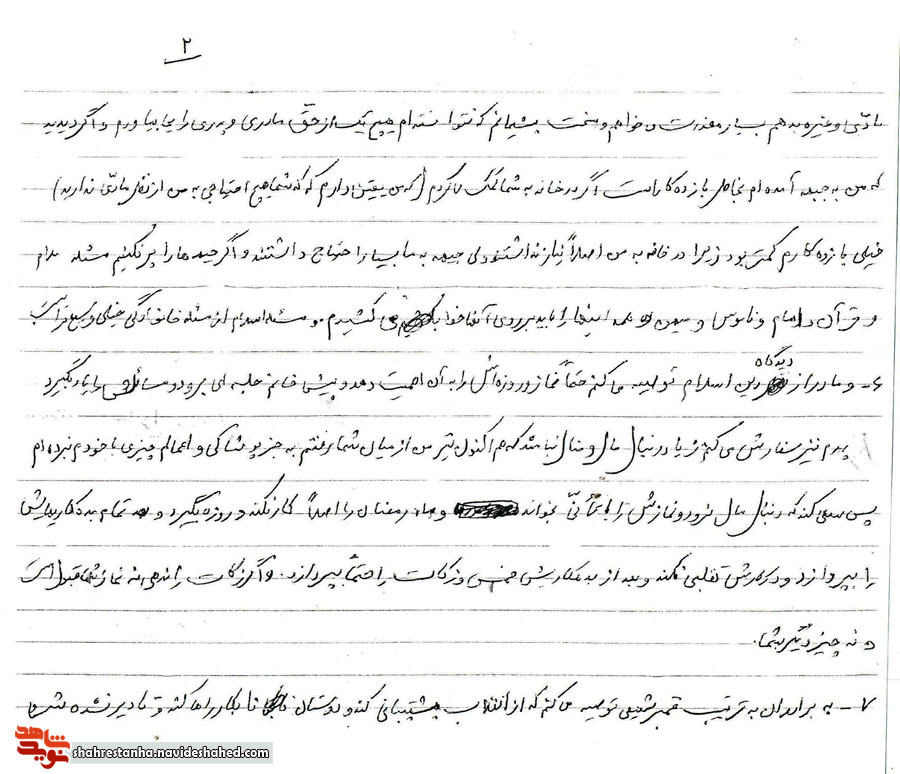 ۲
مادّی و غیره به هم بسیار معذرت می خواهم و سخت پشیمانم که نتوانسته ام هیچ یک از حقّ مادری و پدری را بجا بیاورم و اگر دیدید
که من به جبهه آمده ام بخاطر بازده کار است اگر در خانه به شما کمک می کردم (که من یقین دارم که که شما هیچ احتیاجی به من از نظر مادّی ندارید)
خیلی بازده کارم کمتر بود زیرا در خانه به من اصلاً نیاز نداشتند ولی جبهه به ما بسیار احتیاج داشتند و اگر جبهه ها را پر نکنیم مسئله
و قرآن و امام و ناموس و میهن و همه اینها را باید بر روی آنها خط می کشیدم. و مسئله اسلام از مسئله خانوادگی خیلی وسیع تر است
۶- و مادر از دیدگاه دین اسلام توصیه می کنم حتماً نماز و روزه اش را به آن اهمیت دهد و پیش خانم جلسه ای برود و مسائلش را یاد بگیرد
پدرم نیز سفارش می کنم زیاد دنبال مال و منال نباشد که هم اکنون نیز من از میان شما رفتم به جز پوشاکی و اعمالم چیزی با خودم نبرده ام
پس سعی کند که دنبال مال نرود و نمازش را با تأنّی بخواند و ماه رمضان را اصلاً کار نکند و روزه بگیرد و تمام بدهکاریهایش
را بپردازد و در کارش تقلبی نکند و بعد از بدهکاریش خمس و زکات را حتماً بپردازد. و اگر زکات را ندهی نه نماز شما قبول است
و نه چیز دیگر شما.
۷- به برادران به ترتیب قمبر شعیبی توصیه می کنم که از انقلاب پشتیبانی کند و دوستان نابکار را رها کند و تا دیر نشده
شاهد
نوید
shahrestanha.navideshahed.com